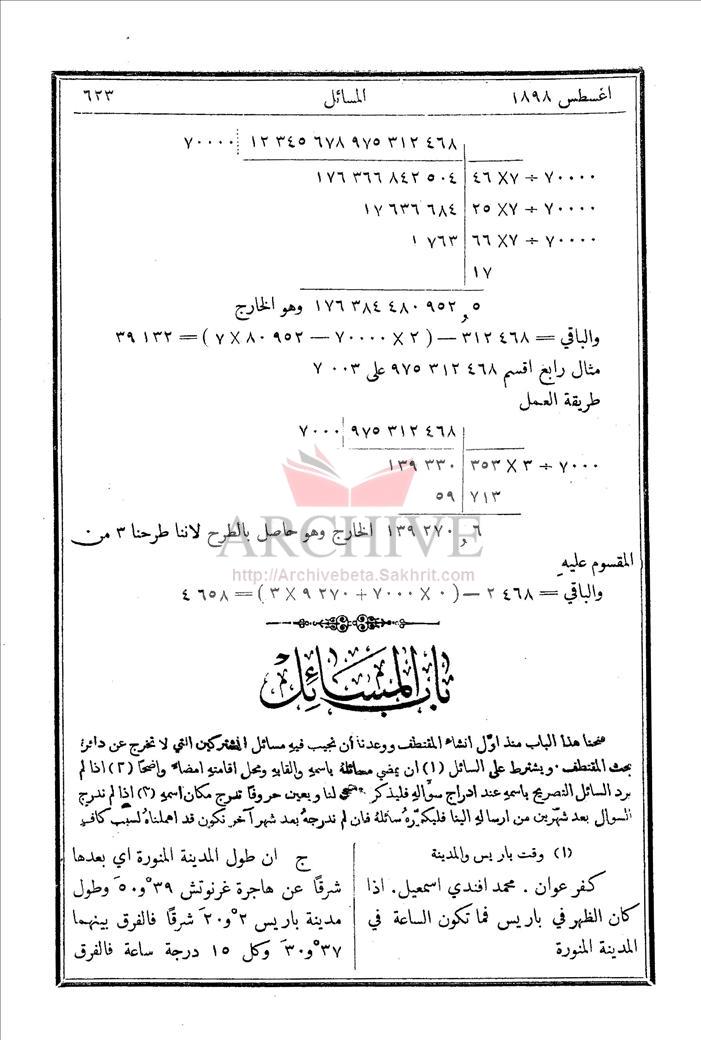 اغسطس ١٨٩٨ المسائل ٦٢٣
١٢ ٣٤٥ ٦٧٨ ٩٧٥ ٣١٢ ٤٦٨ ٧٠٠٠٠
٤٦ X٧ ÷ ٧٠٠٠٠ ١٧٦ ٣٦٦ ٨٤٢ ٥٠٤
٢٥ X٧ ÷ ٧٠٠٠٠ ١٧ ٦٣٦ ٦٨٤
٦٦ X٧ ÷ ٧٠٠٠٠ ١ ٧٦٣
١٧
١٧٦ ٣٨٤ ٤٨٠ ٩٥٢ ,٥ وهو الخارج
والباقي = ٣١٢ ٤٦٨ — ( ٢ X ٧٠٠٠٠ — ٩٥٢ ٨٠ X ٧ ) = ١٣٢ ٣٩
مثال رابع اقسم ٩٧٥ ٣١٢ ٤٦٨ على ٧ ٠٠٣
طريقة العمل
٩٧٥ ٣١٢ ٤٦٨ ٧٠٠٠
٣٥٣ X ٣ ÷ ٧٠٠٠ ١٣٩ ٣٣٠
٧١٣ ٥٩
١٣٩ ٢٧٠ ,٦ الخارج وهو حاصل بالطرح لاننا طرحنا ٣ من
المقسوم عليهِ
والباقي = ٢ ٤٦٨ — ( ٠ X ٧٠٠٠ + ٩ ٢٧٠ X ٣ ) = ٤ ٦٥٨
ARCHIVE
http://Archivebeta.Sakhrit.com
باب المسائل
فتحنا هذا الباب منذ اوّل انشاء المقتطف ووعدنا أن نجيب فيهِ مسائل المشتركين التي لا تخرج عن دائرة
بحث المقتطف . ويشترط على السائل (١) ان يمضي مسائلهُ باسمهِ والقابهِ ومحل اقامتهِ امضاءً واضحًا (٢) اذا لم
يرد السائل التصريح باسمهِ عند ادراج سؤّالهِ فليذكر لنا ويعين حروفًا تدرج مكان اسمهِ (٣) اذا لم ندرج
السوال بعد شهرين من ارسالهِ الينا فليكررهُ سائلهُ فان لم ندرجهُ بعد شهر آخر نكون قد اهملناهُ لسبب كافٍ
(١) وقت باريس والمدينة
كفر عوان . محمد افندي اسمعيل. اذا
كان الظهر في باريس فما تكون الساعة في
المدينة المنورة
ج ان طول المدينة المنورة اي بعدها
شرقًا عن هاجرة غرنوتش ٣٩° و٥٠َ وطول
مدينة باريس ٢° و٢٠َ شرقًا فالفرق بينهما
٣٧° و٣٠َ وكل ١٥ درجة ساعة فالفرق